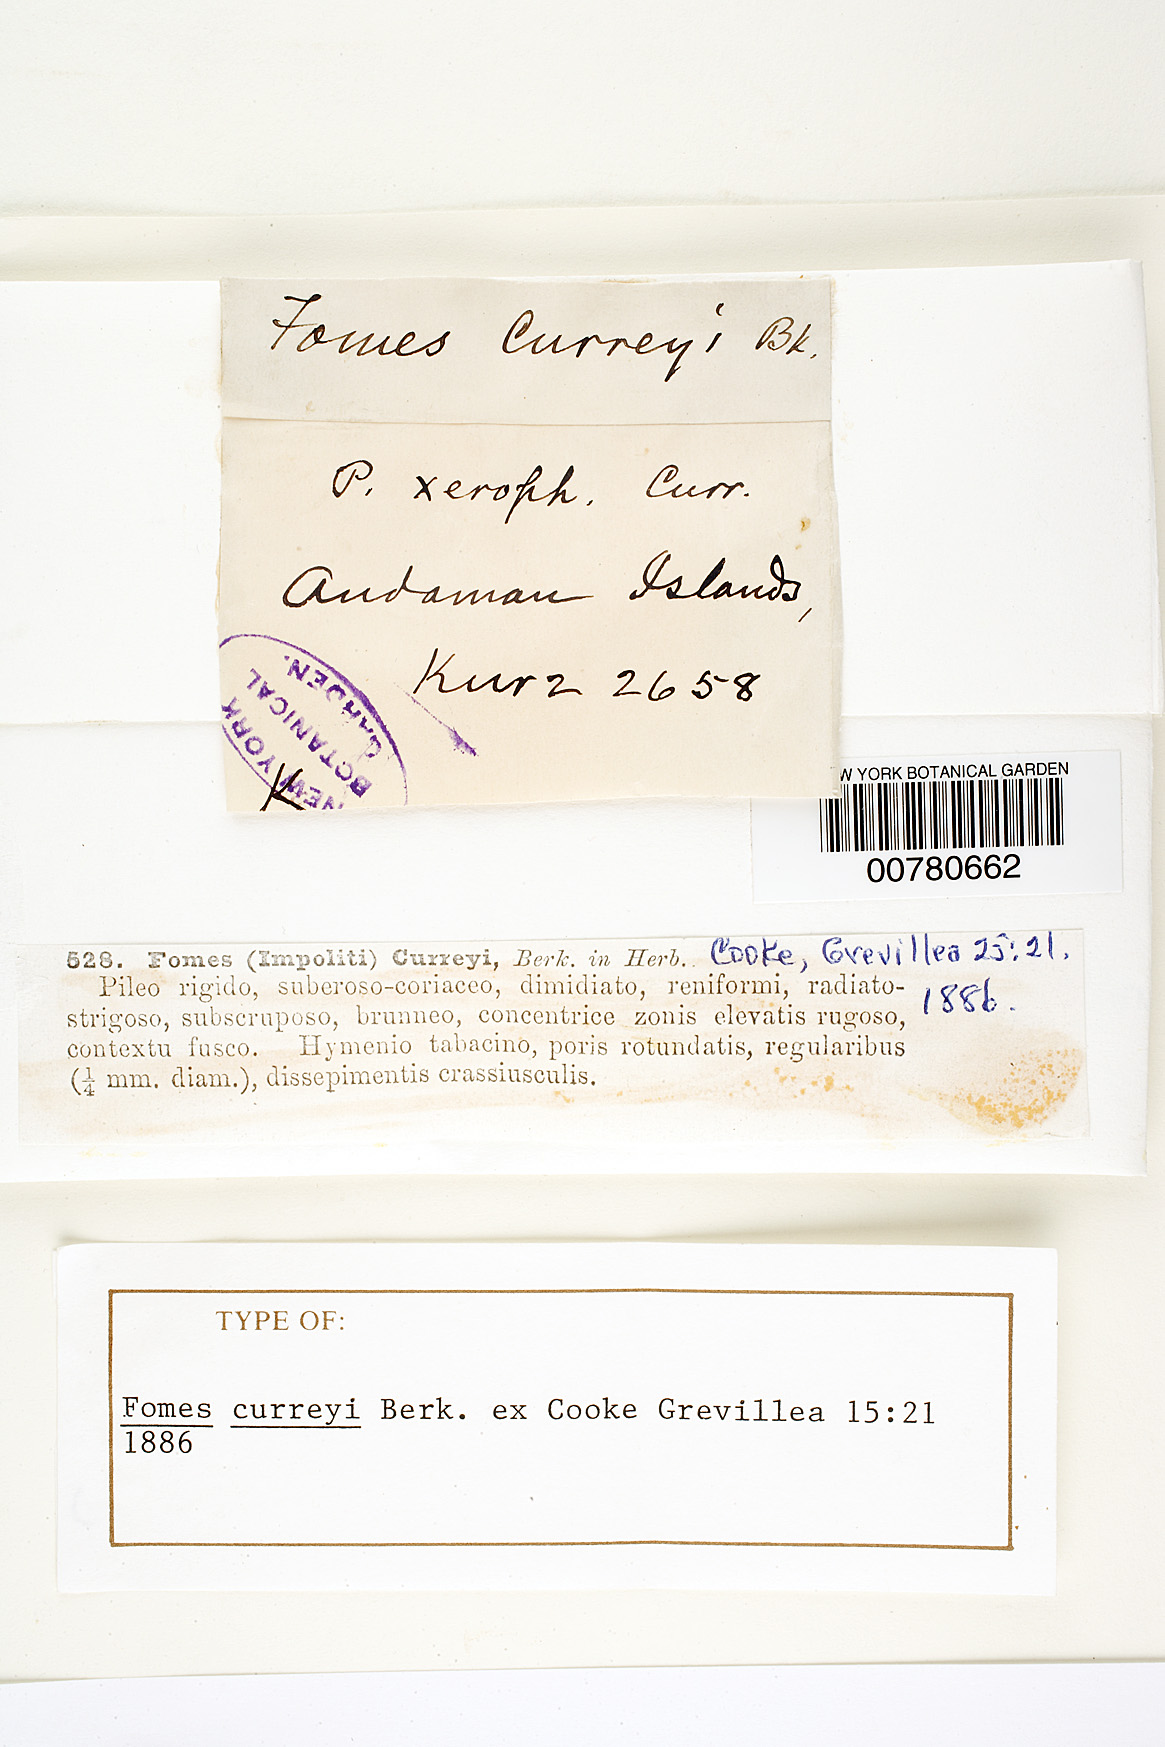 Fomes Curreyi Bk.
P. xeroph. Curr.
Andaman Islands,
Kurz 2658
NEW YORK
BOTANICAL
GARDEN.
K
W YORK BOTANICAL GARDEN
00780662
528. Fomes (Impoliti) Curreyi, Berk. in Herb. Cooke, Grevillea 25:21.
1886.
Pileo rigido, suberoso-coriaceo, dimidiato, reniformi, radiato-
strigoso, subscruposo, brunneo, concentrice zonis elevatis rugoso,
contextu fusco. Hymenio tabacino, poris rotundatis, regularibus
(¼ mm. diam.), dissepimentis crassiusculis.
TYPE OF:
Fomes curreyi Berk. ex Cooke Grevillea 15:21
1886